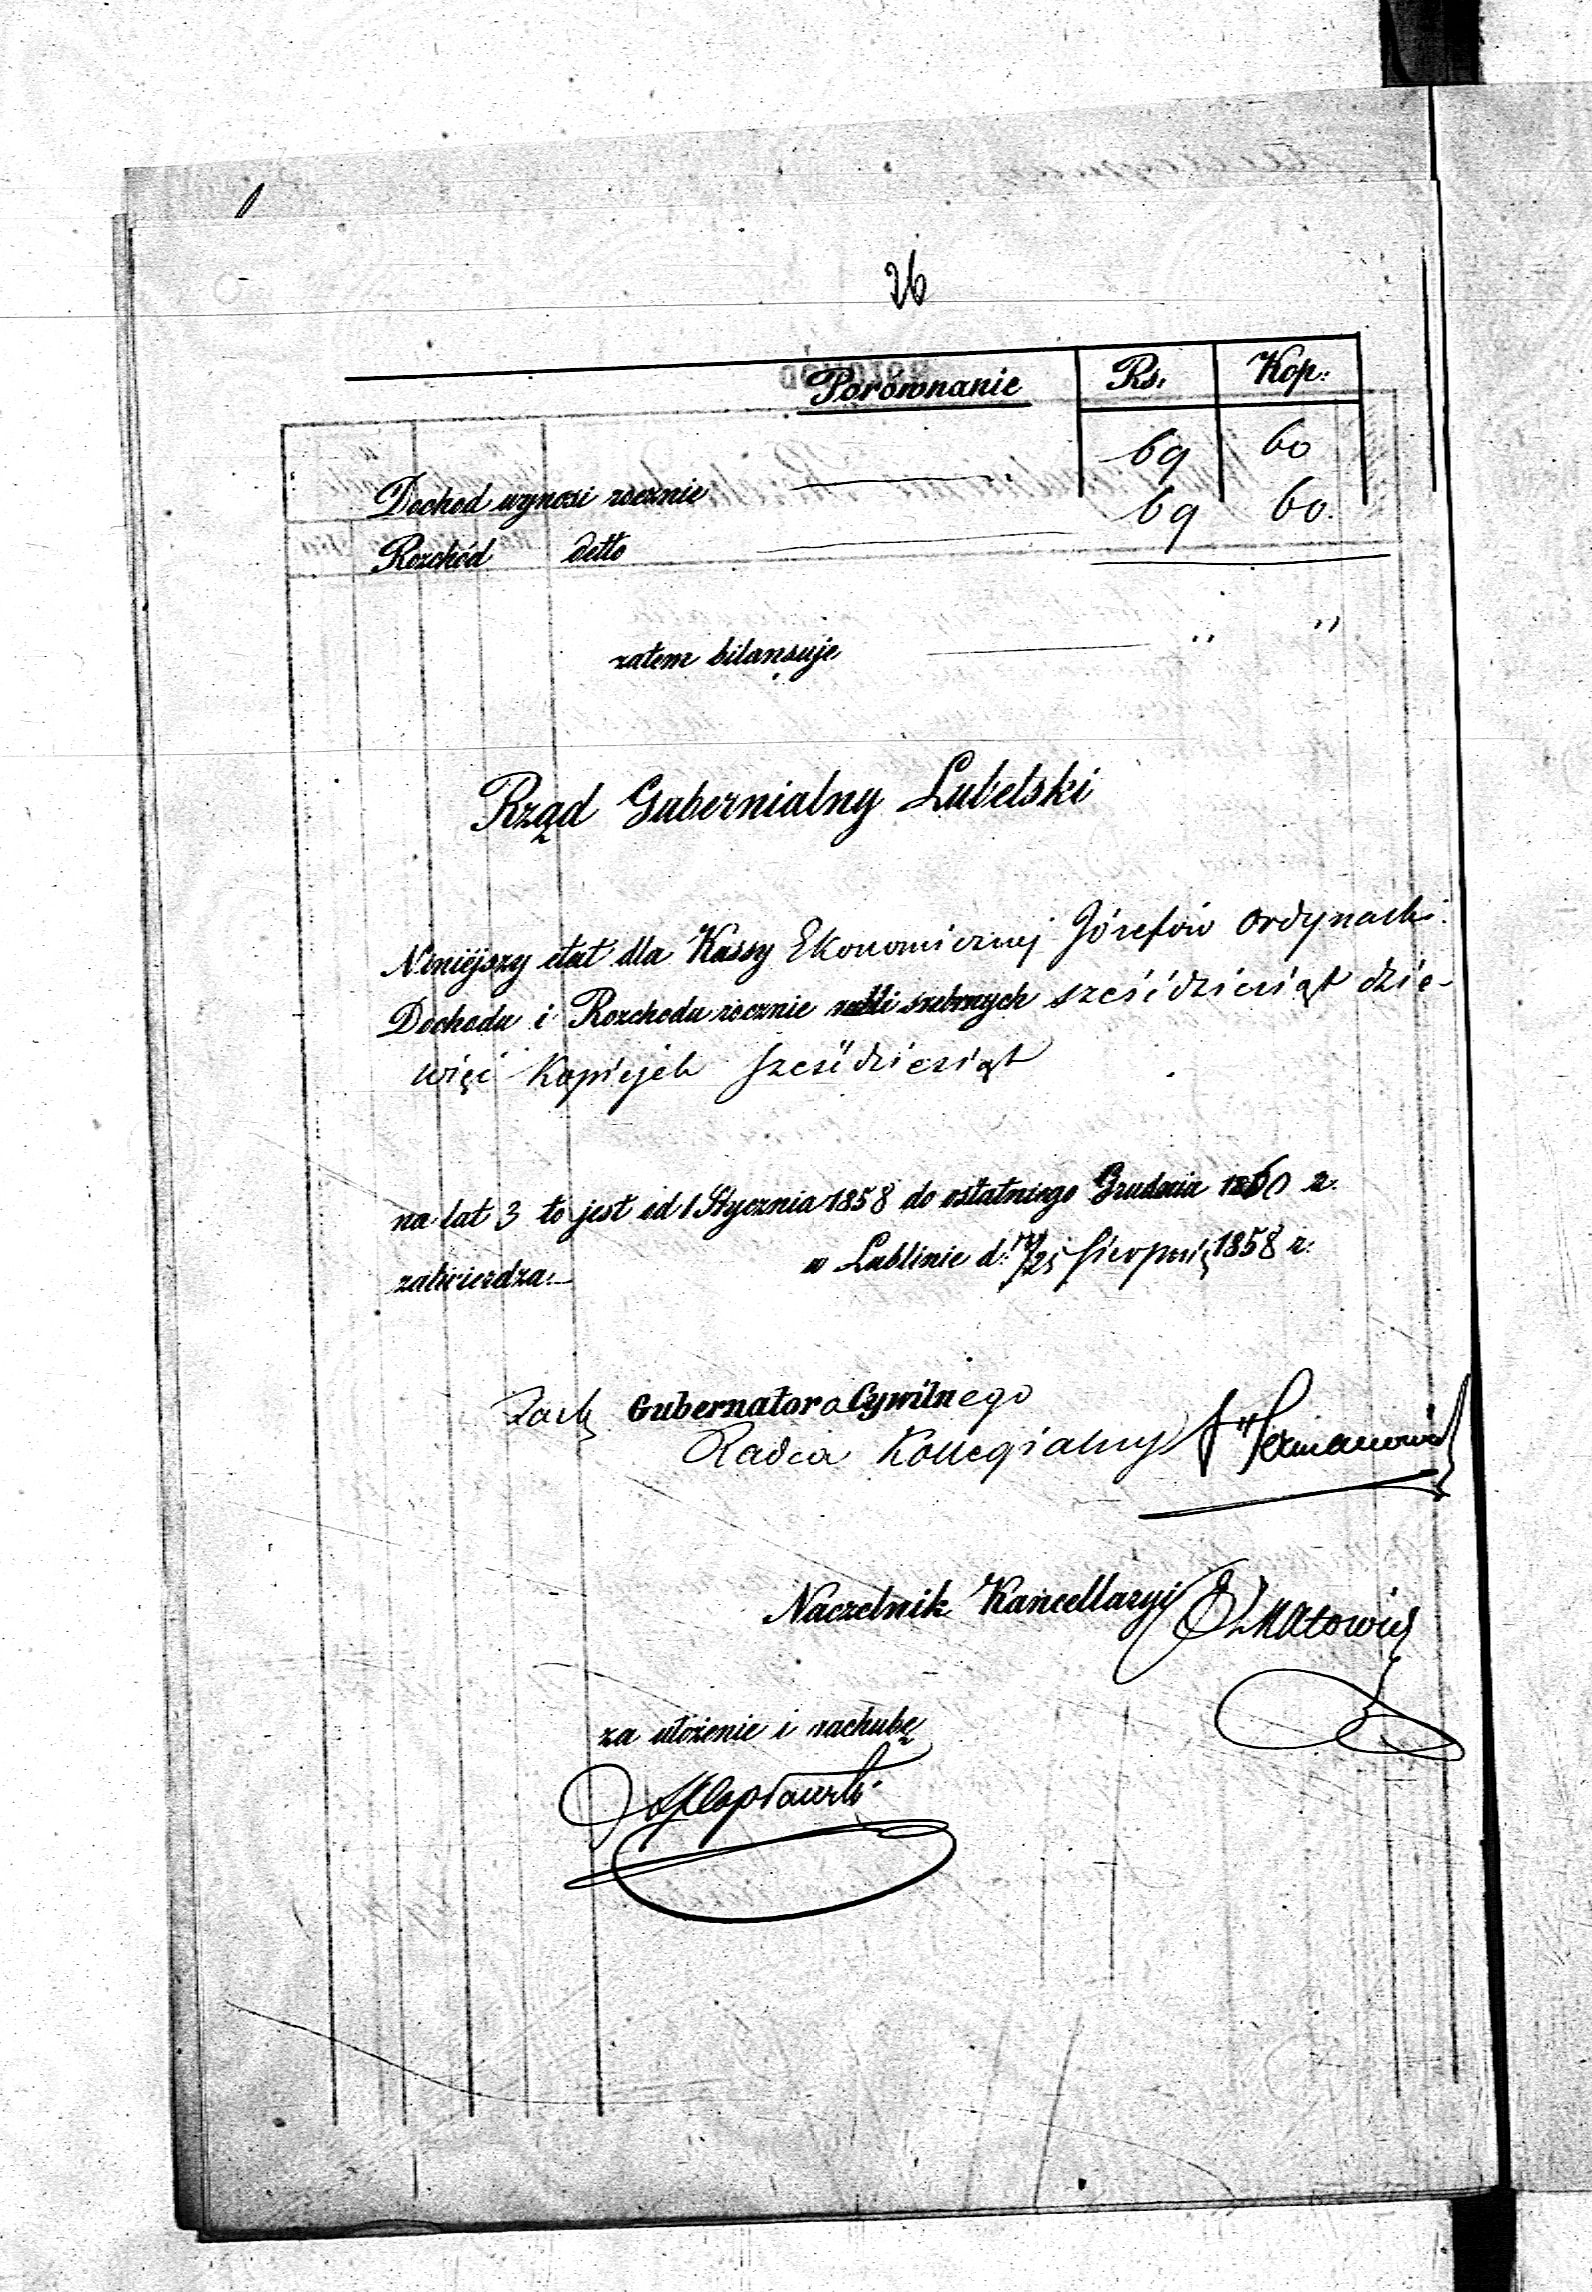 26
Porównanie Rs. Kop:
Dochod wynosi rocznie 69 60
Rozchód detto 69 60.
zatem bilansuje " "
Rząd Gubernialny Lubelski
Niniejszy etat dla Kassy Ekonomicznej Józefów Ordynacki
Dochodu i Rozchodu rocznie rubli srebrnych sześćdziesiąt dzie-
więć Kopiejek sześćdziesiąt
na lat 3 to jest od 1 Stycznia 1858 do ostatniego Grudnia 1860 r.
zatwierdza.—
w Lublinie d. /25 Sierpnia 1858 r:
Gubernatora Cywilnego
Radca Kollegialny
Naczelnik Kancellaryi
za ułożenie i rachubę